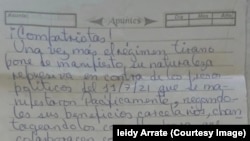 Apuntes
¡Compatriotas!
Una vez más el régimen tirano
pone de manifiesto, su naturaleza
represiva en contra de los presos
políticos del 11/7/21 que se ma-
nifestaron pacíficamente, negando-
les sus beneficios carcelarios, chan
tageandolos
leidy Arrate (Courtesy Image)